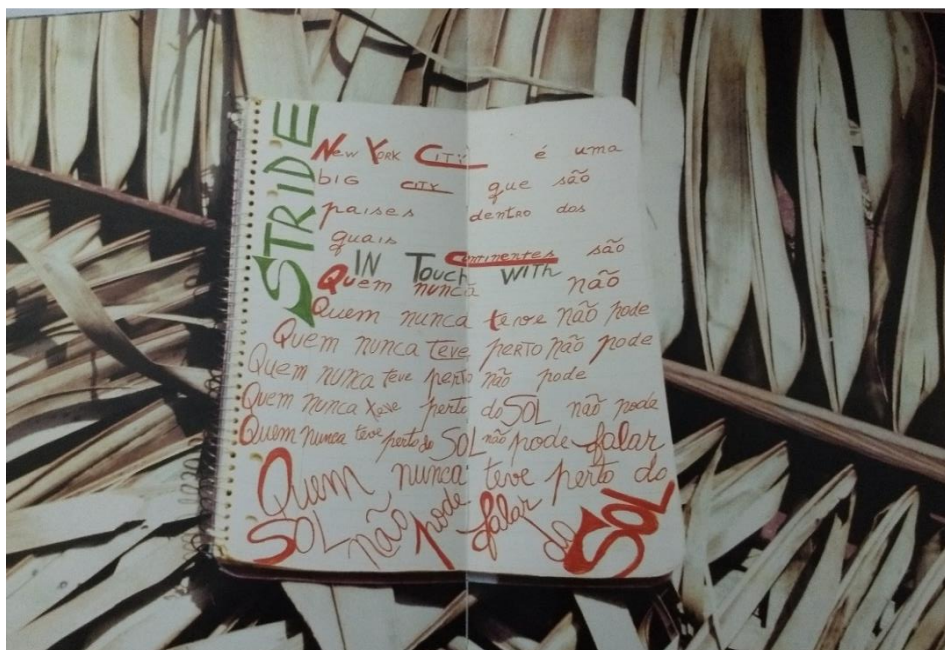 STRIDE
New York CITY é uma
bIG CITY que são
paises dentro dos
quais
Continentes são
IN Touch WITh
Quem nunca não
Quem nunca teve não pode
Quem nunca teve perto não pode
Quem nunca teve perto não pode
Quem nunca teve perto do SOL não pode
Quem nunca teve perto do SOL não pode falar
Quem nunca teve perto do
SOL não pode falar do SOL